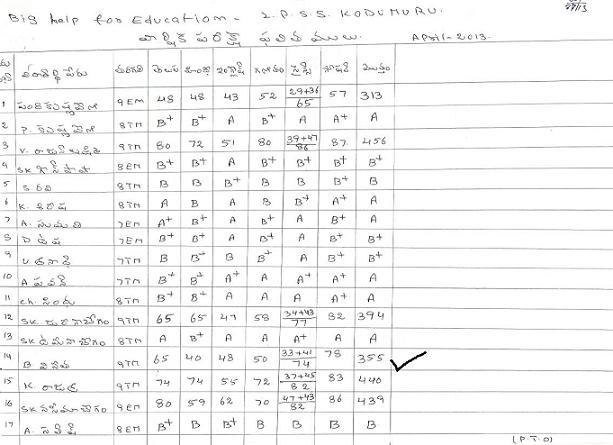 Big help for Education - Z.P.S.S. KODUMURU.
వార్షిక పరీక్ష ఫలితములు. APRIL-2013.
విద్యార్థి పేరు తరగతి తెలుగు హిందీ ఇంగ్లీష్ గణితం సైన్స్ సోషల్ మొత్తం
1 9EM 48 48 43 52 29+36/65 57 313
2 P. కృష్ణవేణి 8TM B+ B+ A B+ A+ A+ A
3 9TM 80 72 51 80 39+47/86 87 456
4 SK 8EM B+ B+ A B+ B+ B+ B+
5 8TM B B B+ B B B+ B
6 K. శిరీష 8TM A B A B B+ A+ A
7 A. సుమతి 7EM A+ B+ A B+ A B+ A
8 D దివ్య 7EM B+ B+ A B+ A B+ B+
9 7TM B B B B+ A B+ B+
10 A పావని 7TM B+ B+ A+ A A+ A+ A+
11 Ch. సింధు 8TM B+ B+ A A A A+ A
12 SK 9TM 65 65 47 58 34+43/77 82 394
13 SK 8TM A B+ A A A+ A A
14 B వినీత 9TM 65 40 48 50 33+41/74 78 355
15 K. 9TM 74 74 55 72 37+45/82 83 440
16 SK 9EM 80 59 62 70 47+43/82 86 439
17 A. 8EM B+ B B+ B B B B
(P.T.O)